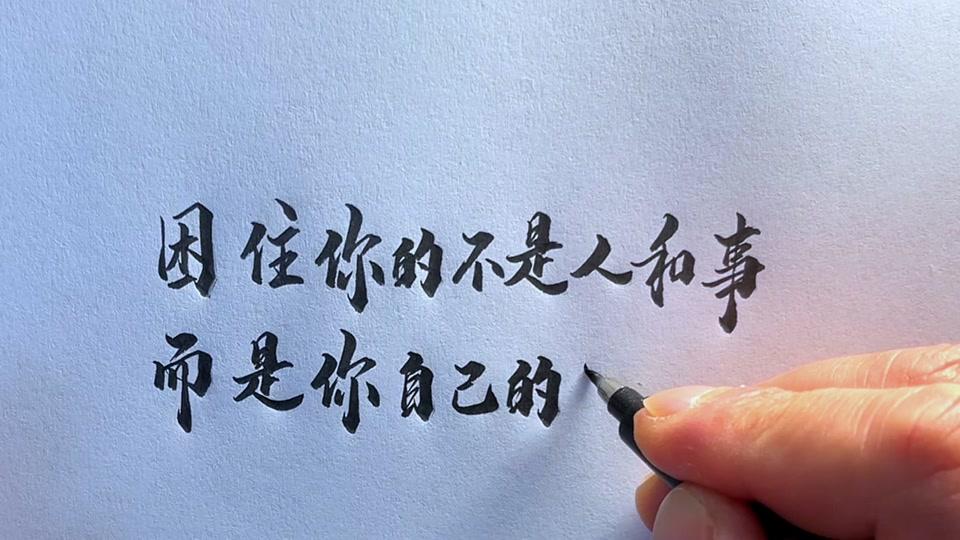 困住你的不是人和事
而是你自己的